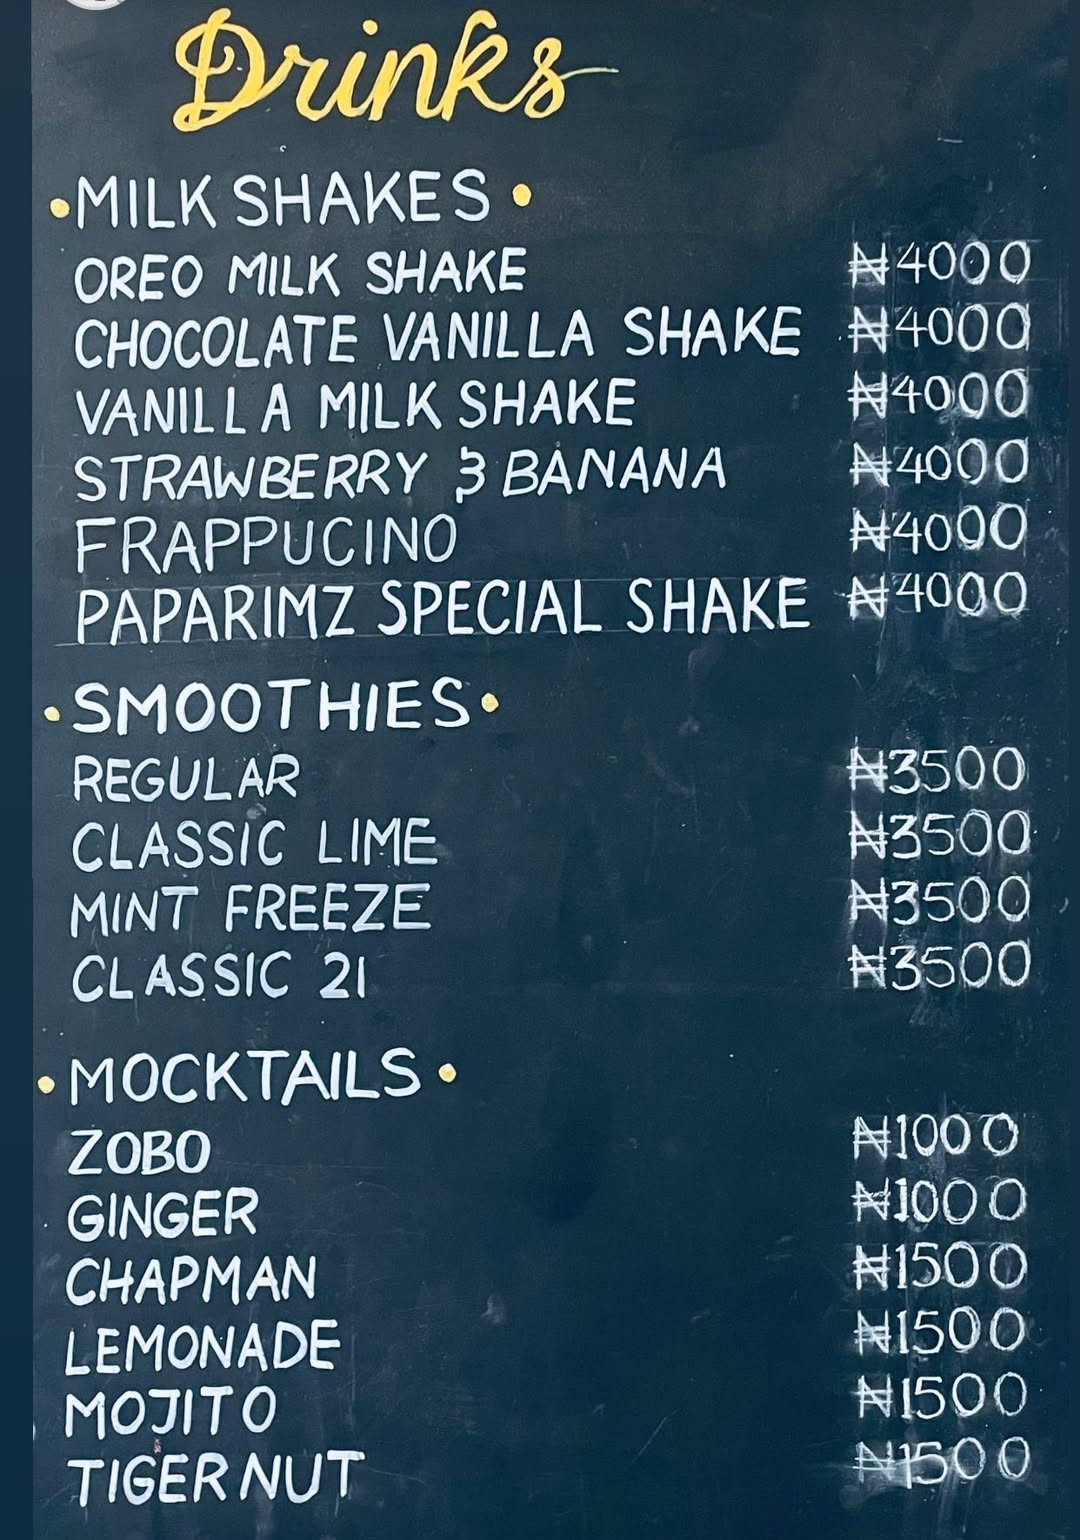 Drinks
• MILK SHAKES •
OREO MILK SHAKE ₦4000
CHOCOLATE VANILLA SHAKE ₦4000
VANILLA MILK SHAKE ₦4000
STRAWBERRY & BANANA ₦4000
FRAPPUCINO ₦4000
PAPARIMZ SPECIAL SHAKE ₦4000
• SMOOTHIES •
REGULAR ₦3500
CLASSIC LIME ₦3500
MINT FREEZE ₦3500
CLASSIC 21 ₦3500
• MOCKTAILS •
ZOBO ₦1000
GINGER ₦1000
CHAPMAN ₦1500
LEMONADE ₦1500
MOJITO ₦1500
TIGERNUT ₦1500